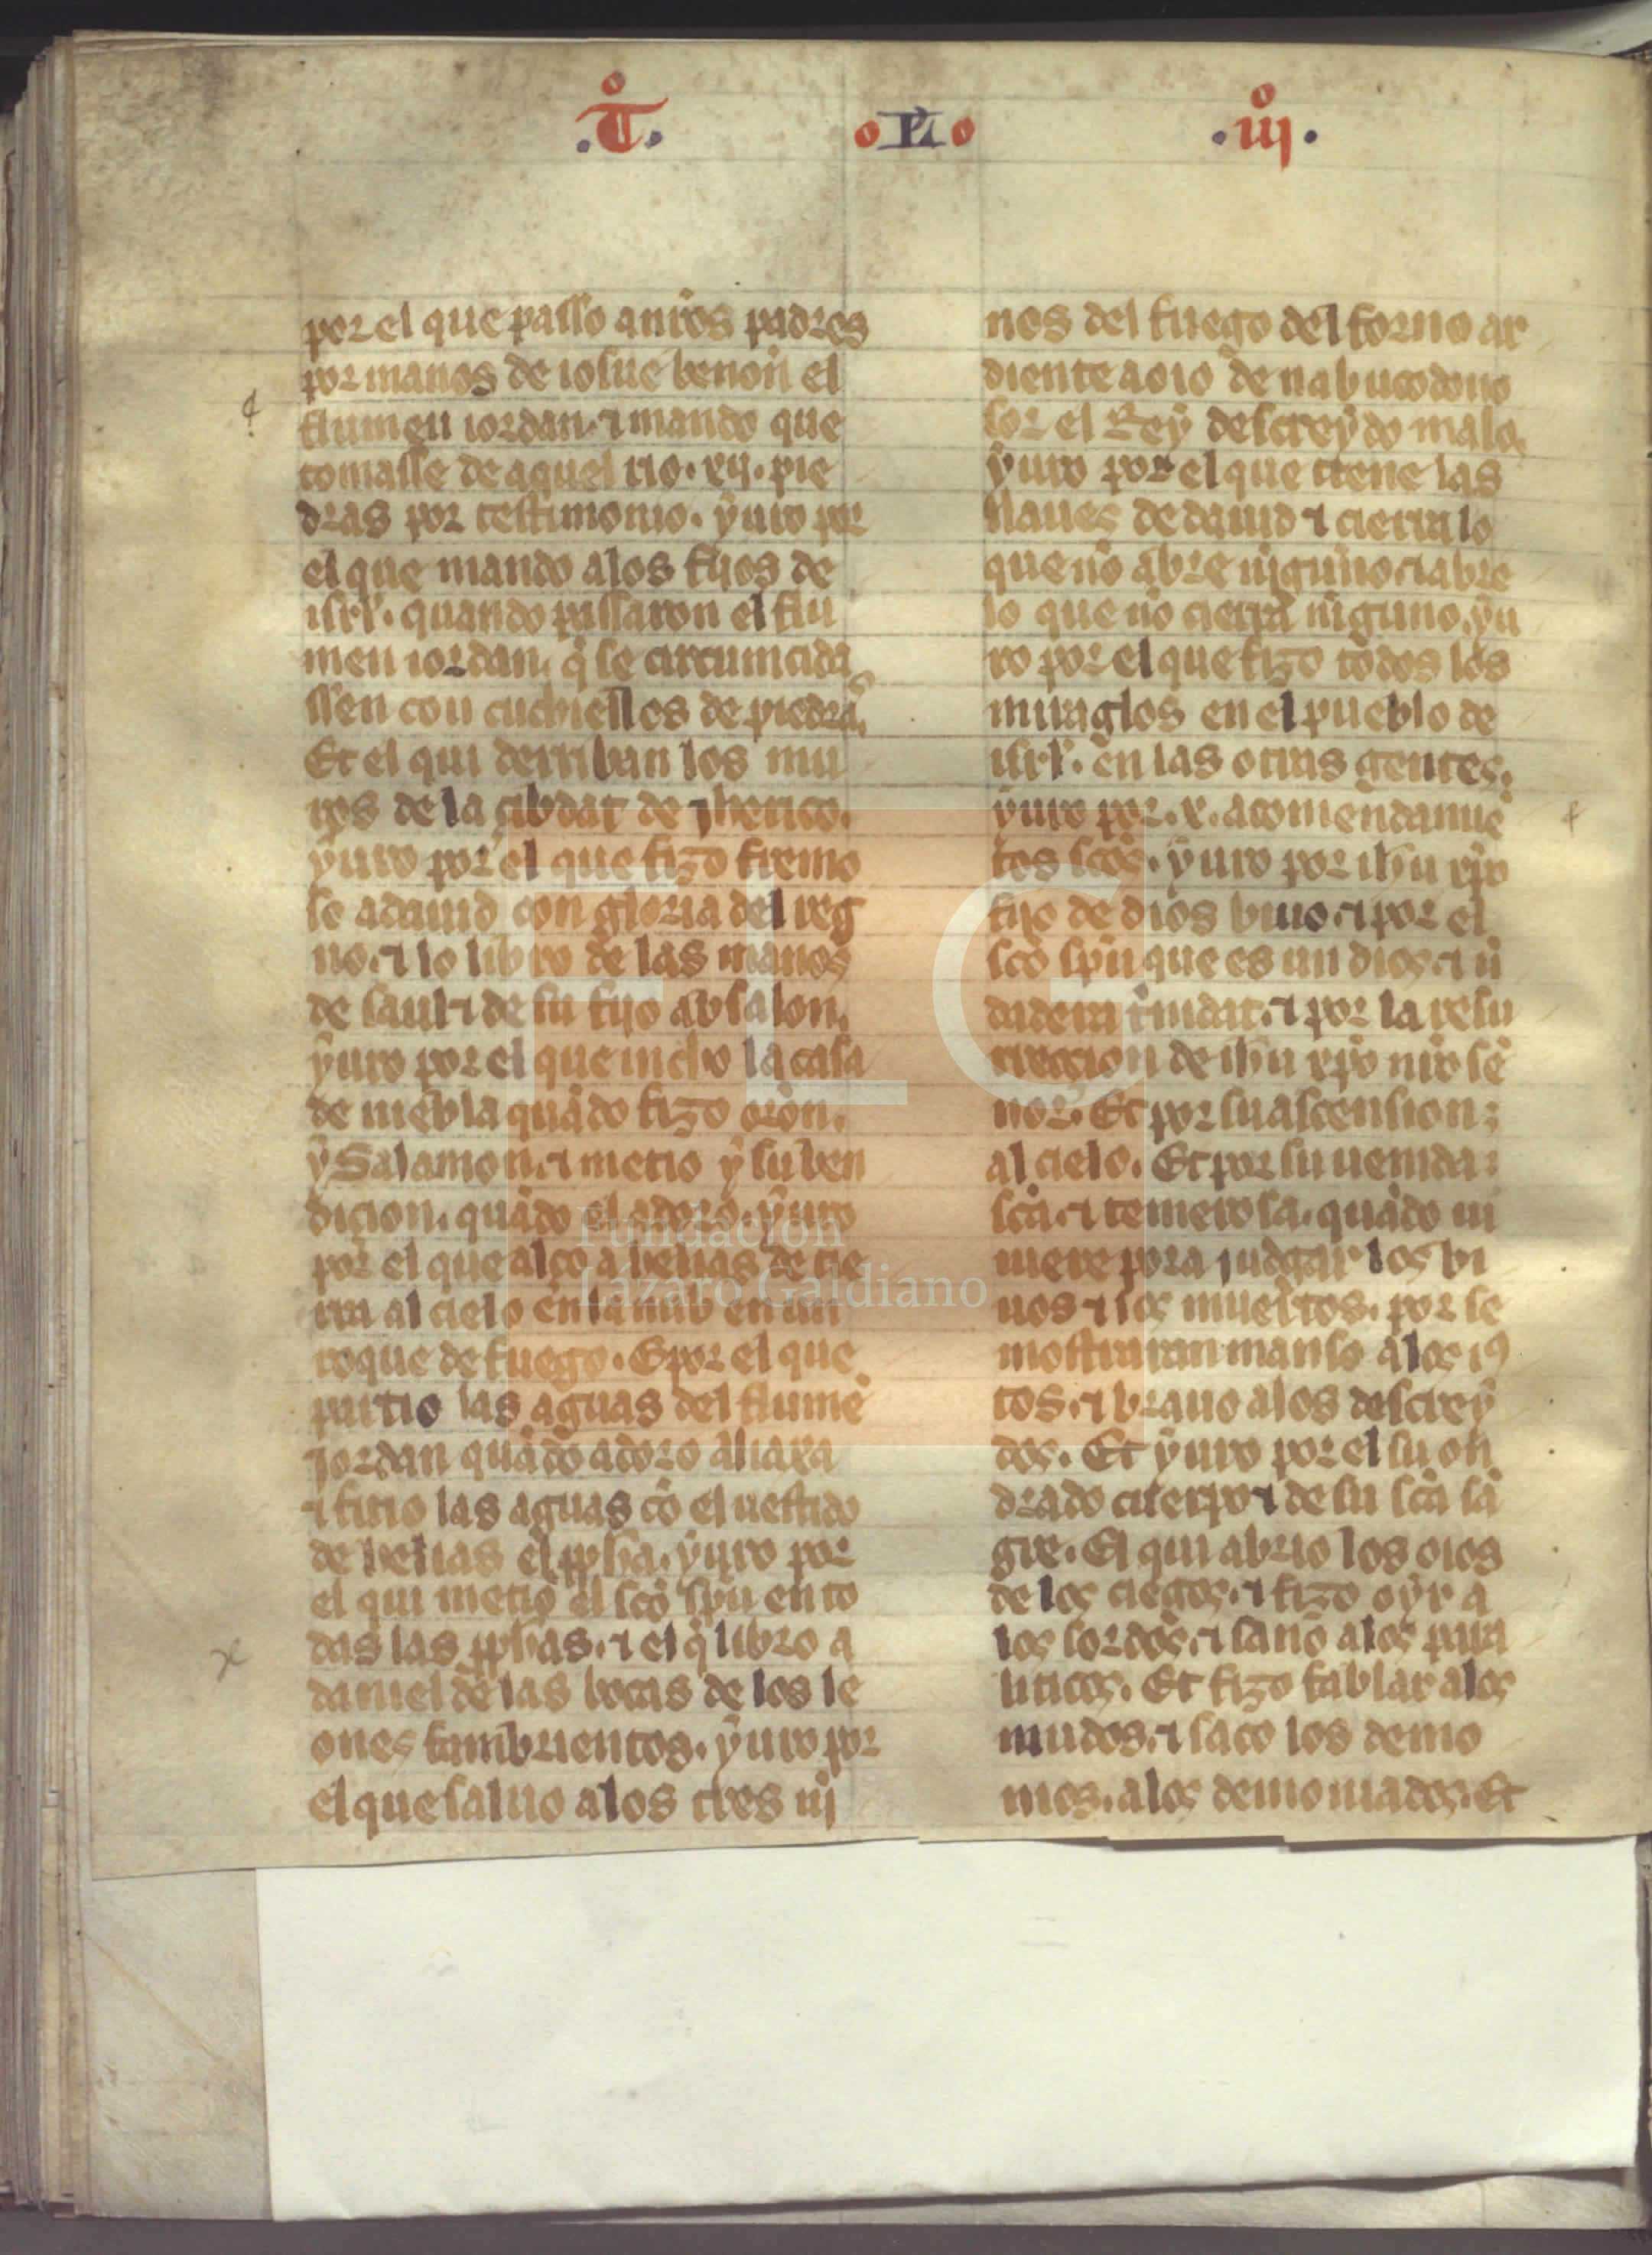 .T̊. oPLo .iij̊.
por el que passo a nr̃os padres
por manos de iosue benon el
flumen iordan. ⁊ mando que
tomasse de aquel rio. xij. pie
dras por testimonio. ẏuro por
el que mando alos fijos de
isrl̃. quando passaron el flu
men iordan. q̃ se circumcida
ssen con cuchiellos de piedra.
Et el qui derriban los mu
ros de la cibdat de jherico.
ẏuro por el que fizo fremo
so a dauid con gloria del reg
no. ⁊ lo libro de las manos
de saul ⁊ de su fijo absalon.
ẏuro por el que incho la casa
de niebla quãdo fizo orõn.
ẏ Salamon. ⁊ metio ẏ su ben
dicion. quãdo el adoro. ẏuro
por el que alço a helias de tie
rra al cielo en la nub en un
toque de fuego. E por el que
partio las aguas del flumẽ
jordan quãdo adoro
⁊ firio las aguas cõ el uestido
de helias el ꝓph̃a. ẏuro por
el qui metio el sc̃o sp̃u en to
das las ꝓph̃as. ⁊ el q̃ libro a
daniel de las bocas de los le
ones fambrientos. ẏuro por
el que saluo alos tres nj
nos del fuego del forno ar
diente de nabucodono
sor el Reẏ descreẏdo malo.
ẏuro por el que tiene las
llaues de dauid ⁊ cierra lo
que nõ abre nịguno ⁊ abre
lo que nõ cierra nịguno. ẏu
ro por el que fizo todos los
miraglos en el pueblo de
isrl̃. en las otras gentes.
ẏuro por. x. acomendamiẽ
tos sc̃os. ẏuro por ihũ xp̃o
fijo de dios biuo. ⁊ por el
sc̃o sp̃u que es un dios. ⁊ ũ
dadera t̃nidat. ⁊ por la resu
rreccion de ihũ xp̃o nr̃o sẽ
nor. Et por su ascension:
al cielo. Et por su uenida:
sc̃a. ⁊ temerosa. quãdo ui
niere pora judgar los bi
uos ⁊ los muertos. por se
mostraran manso alos iꝯ
tos. ⁊ brauo alos descreẏ
dos. Et ẏuro por el su on
drado cuerpo ⁊ de su sc̃a sã
gre. El qui abrio los oios
de los ciegos. ⁊ fizo oẏr a
los sordos. ⁊ sano alos para
liticos. Et fizo fablar alos
mudos. ⁊ saco los demo
nios. alos demoniados. Et
FLG
Fundación
Lázaro Galdiano